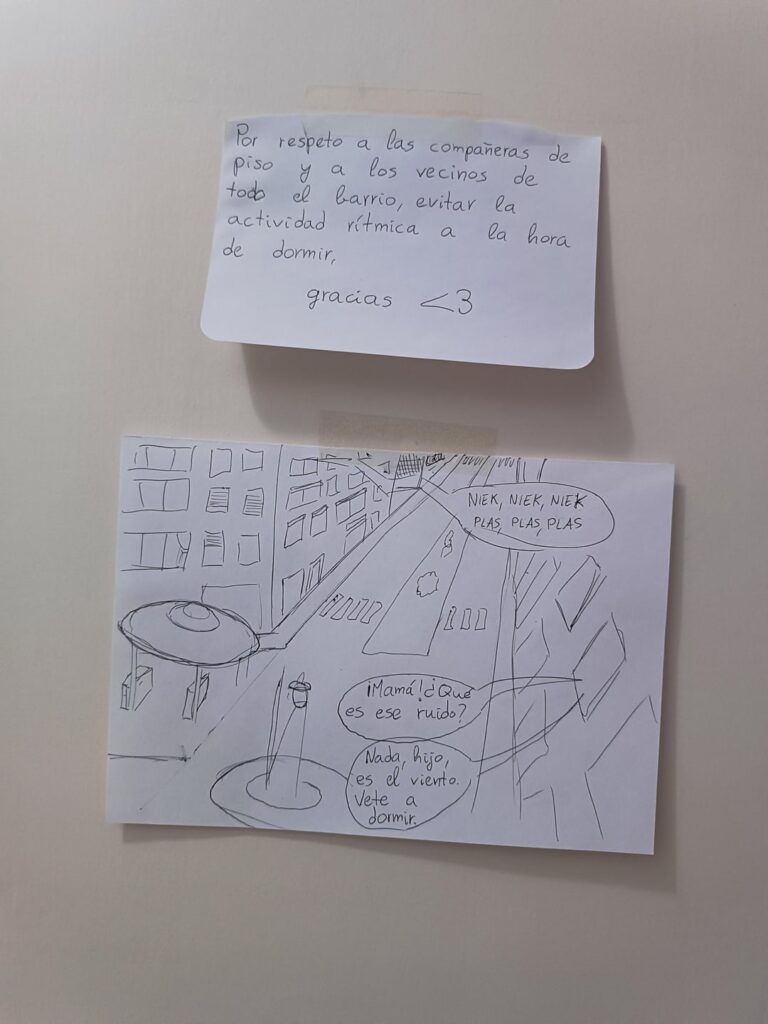 Por respeto a las compañeras de
piso y a los vecinos de
todo el barrio, evitar la
actividad rítmica a la hora
de dormir,
gracias <3
NIEK, NIEK, NIEK
PLAS, PLAS, PLAS
¡Mamá! ¿Qué
es ese ruido?
Nada, hijo,
es el viento.
Vete a
dormir.